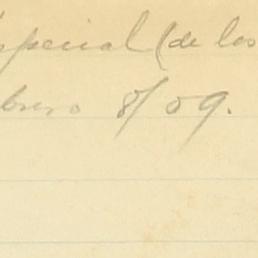 special (de los
brero 8/09.